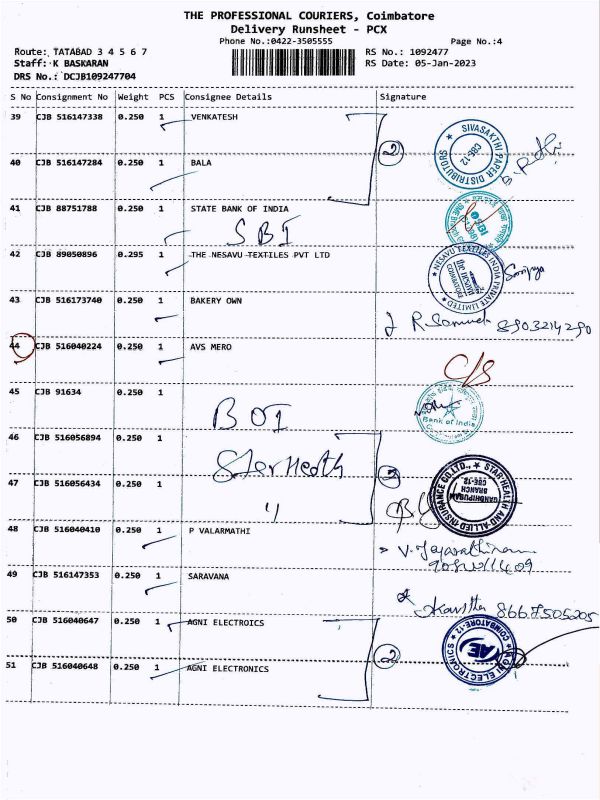 THE PROFESSIONAL COURIERS, Coimbatore
Delivery Runsheet - PCX
Phone No.:0422-3505555 Page No.:4
Route: TATABAD 3 4 5 6 7 RS No.: 1092477
Staff: K BASKARAN RS Date: 05-Jan-2023
DRS No.: DCJB109247704
S No Consignment No Weight PCS Consignee Details Signature
39 CJB 516147338 0.250 1 VENKATESH
2
SIVASAKTHI PAPER DISTRIBUTORS CBE-12
40 CJB 516147284 0.250 1 BALA
41 CJB 88751788 0.250 1 STATE BANK OF INDIA
SBI
42 CJB 89050896 0.295 1 THE NESAVU TEXTILES PVT LTD
NESAVU TEXTILES INDIA PRIVATE LIMITED the nesavu COIMBATORE
43 CJB 516173740 0.250 1 BAKERY OWN
R Samuel 8903214290
44 CJB 516040224 0.250 1 AVS MERO
C/S
45 CJB 91634 0.250 1
BOI
Bank of India
46 CJB 516056894 0.250 1
Star Health
2
STAR HEALTH AND ALLIED INSURANCE CO.LTD., GANDHIPURAM BRANCH CBE-12.
47 CJB 516056434 0.250 1
"
48 CJB 516040410 0.250 1 P VALARMATHI
49 CJB 516147353 0.250 1 SARAVANA
50 CJB 516040647 0.250 1 AGNI ELECTROICS
2
AGNI ELECTRONICS COIMBATORE-12 AE
51 CJB 516040648 0.250 1 AGNI ELECTRONICS